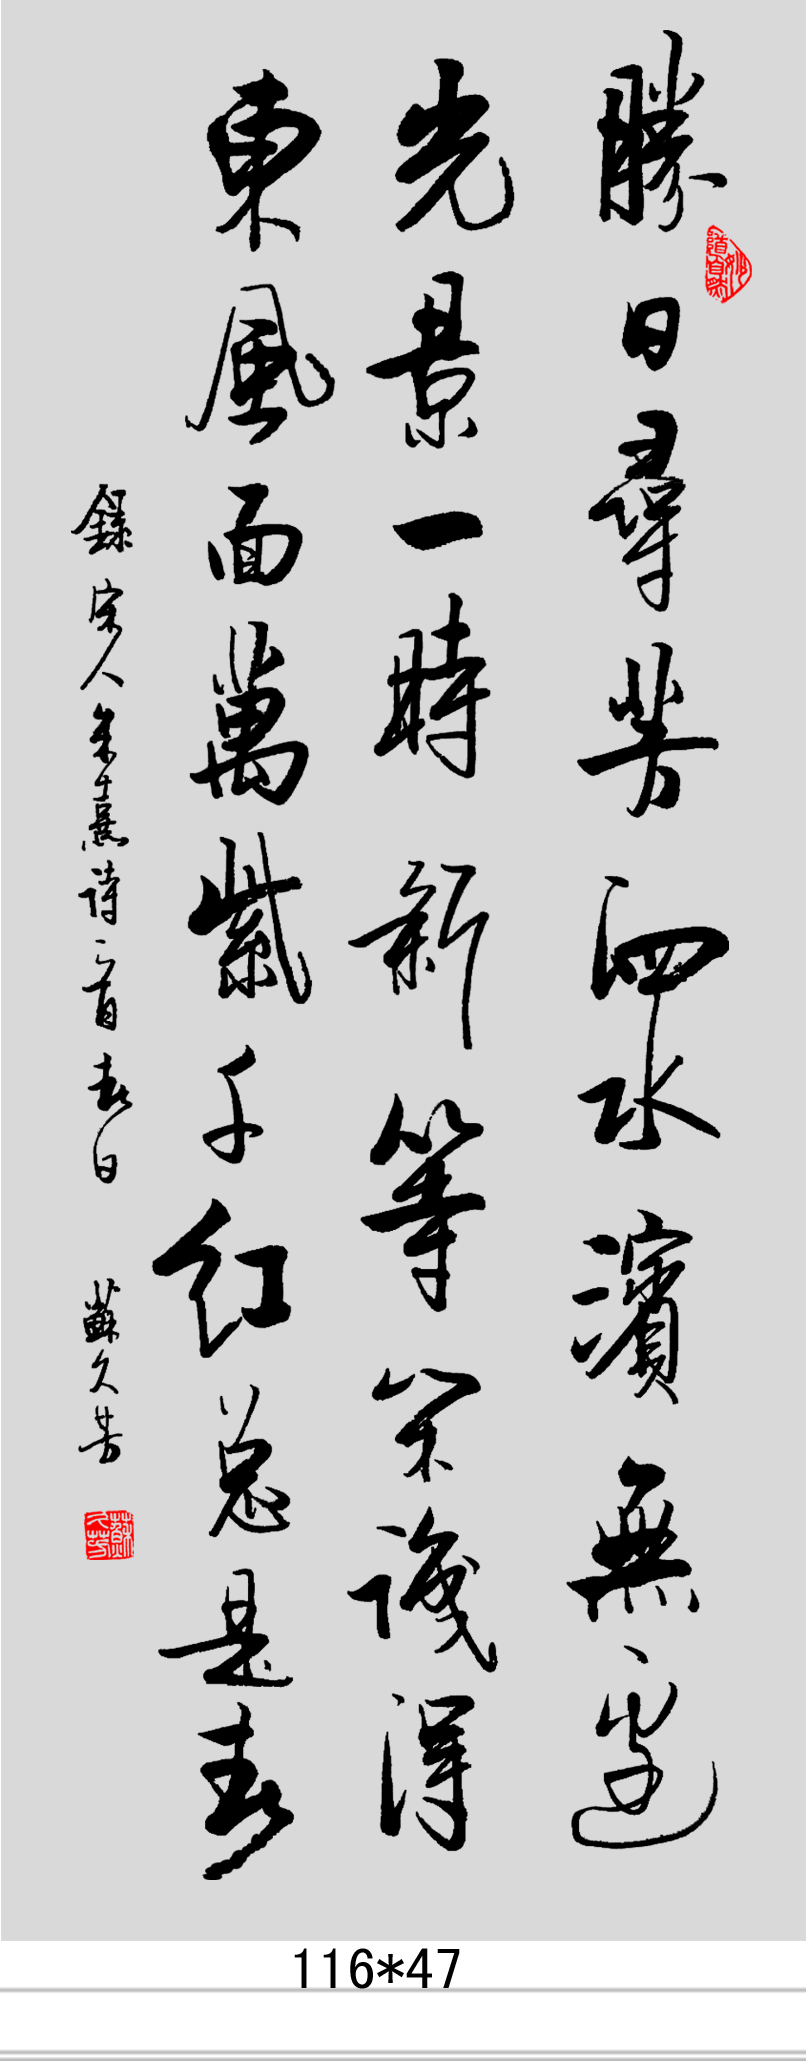 勝日尋芳泗水濱無邊
光景一時新等閑識得
東風面萬紫千紅總是春
錄宋人朱熹詩一首春日 蘇久芳
116*47